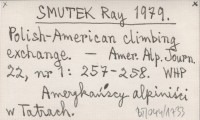 SMUTEK Ray 1979.
Polish-American climbing
exchange. — Amer. Alp. Journ.
22, nr 1: 257-258. WHP
Amerykańscy alpiniści
w Tatrach.